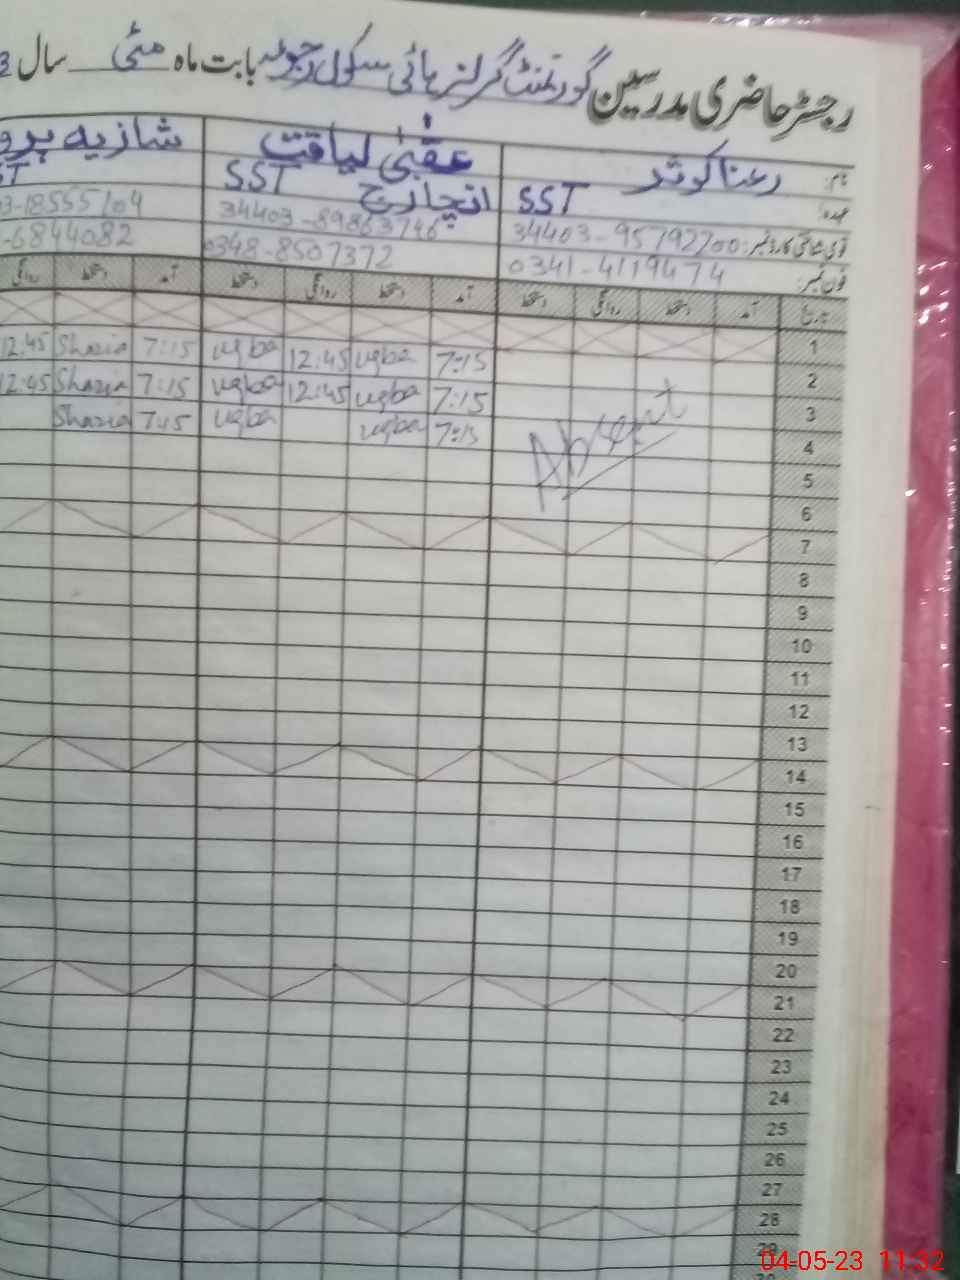 رجسٹر حاضری مدرسین گورنمنٹ گرلز ہائی سکول رجوعہ بابت ماہ مئی سال 3
نام: رعنا کوثر عقبیٰ لیاقت شازیہ پرو
عہدہ: SST انچارج SST ST
قومی شناختی کارڈ نمبر: 34403-95792700 34403-8986374 3-18555104
فون نمبر: 0341-4119474 0348-8507372 -6844082
تاریخ آمد دستخط روانگی دستخط آمد دستخط روانگی دستخط آمد دستخط روانگی
1
2 7:15 uqba 12:45 uqba 7:15 Shazia 12:45
3 7:15 uqba 12:45 uqba 7:15 Shazia 12:45
4 Absent 7:15 uqba uqba 7:15 Shazia
5
6
7
8
9
10
11
12
13
14
15
16
17
18
19
20
21
22
23
24
25
26
27
28
29
30
04-05-23 11:32